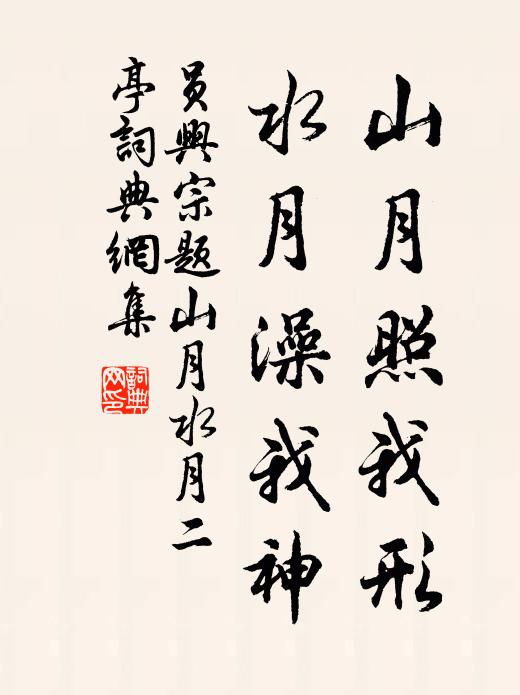 山月照我形
水月澡我神
員興宗題山月水月二
亭詞典網集
詞典網印